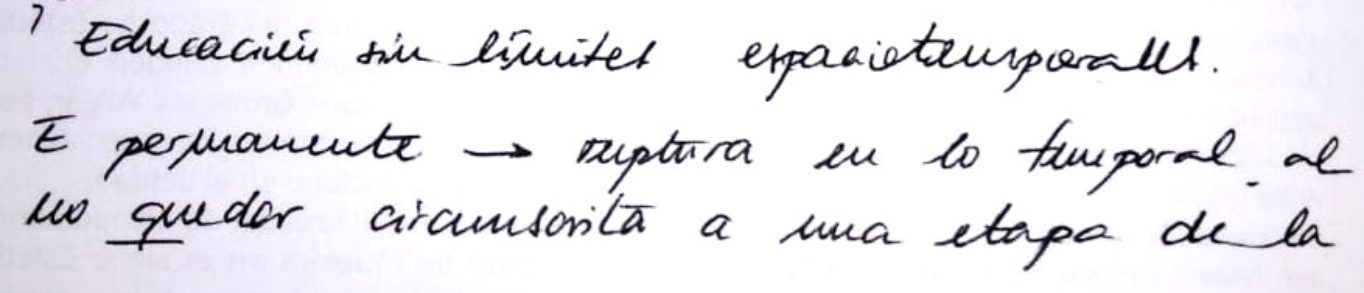 ? Educación sin límites espaciotemporales.
E permanente → ruptura en lo temporal al
no quedar circunscrita a una etapa de la